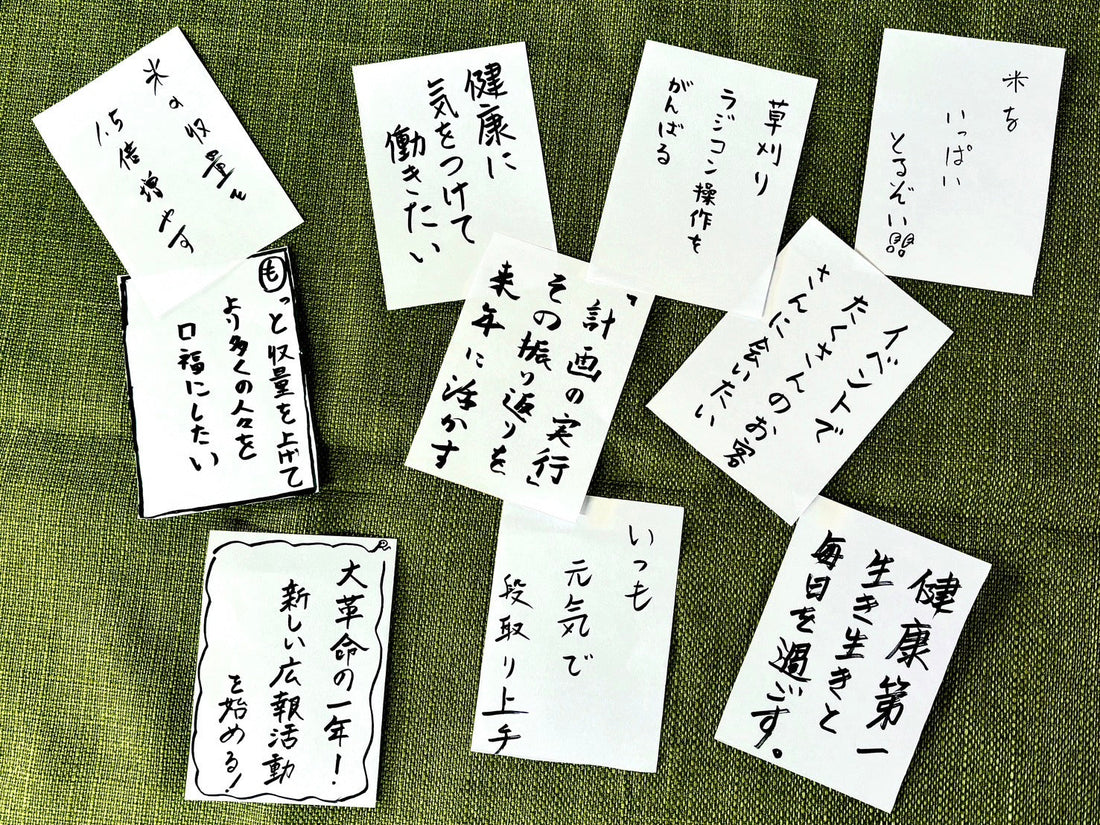 米の収量を
1.5倍増やす
健康に
気をつけて
働きたい
草刈り
ラジコン操作を
がんばる
米を
いっぱい
とるぞい
もっと収量を上げて
より多くの人々を
口福にしたい
「計画の実行」
その振り返りを
来年に活かす
イベントで
たくさんのお客
さんに会いたい
大革命の一年!
新しい広報活動
を始める!
いつも
元気で
段取り上手
健康第一
生き生きと
毎日を過ごす。